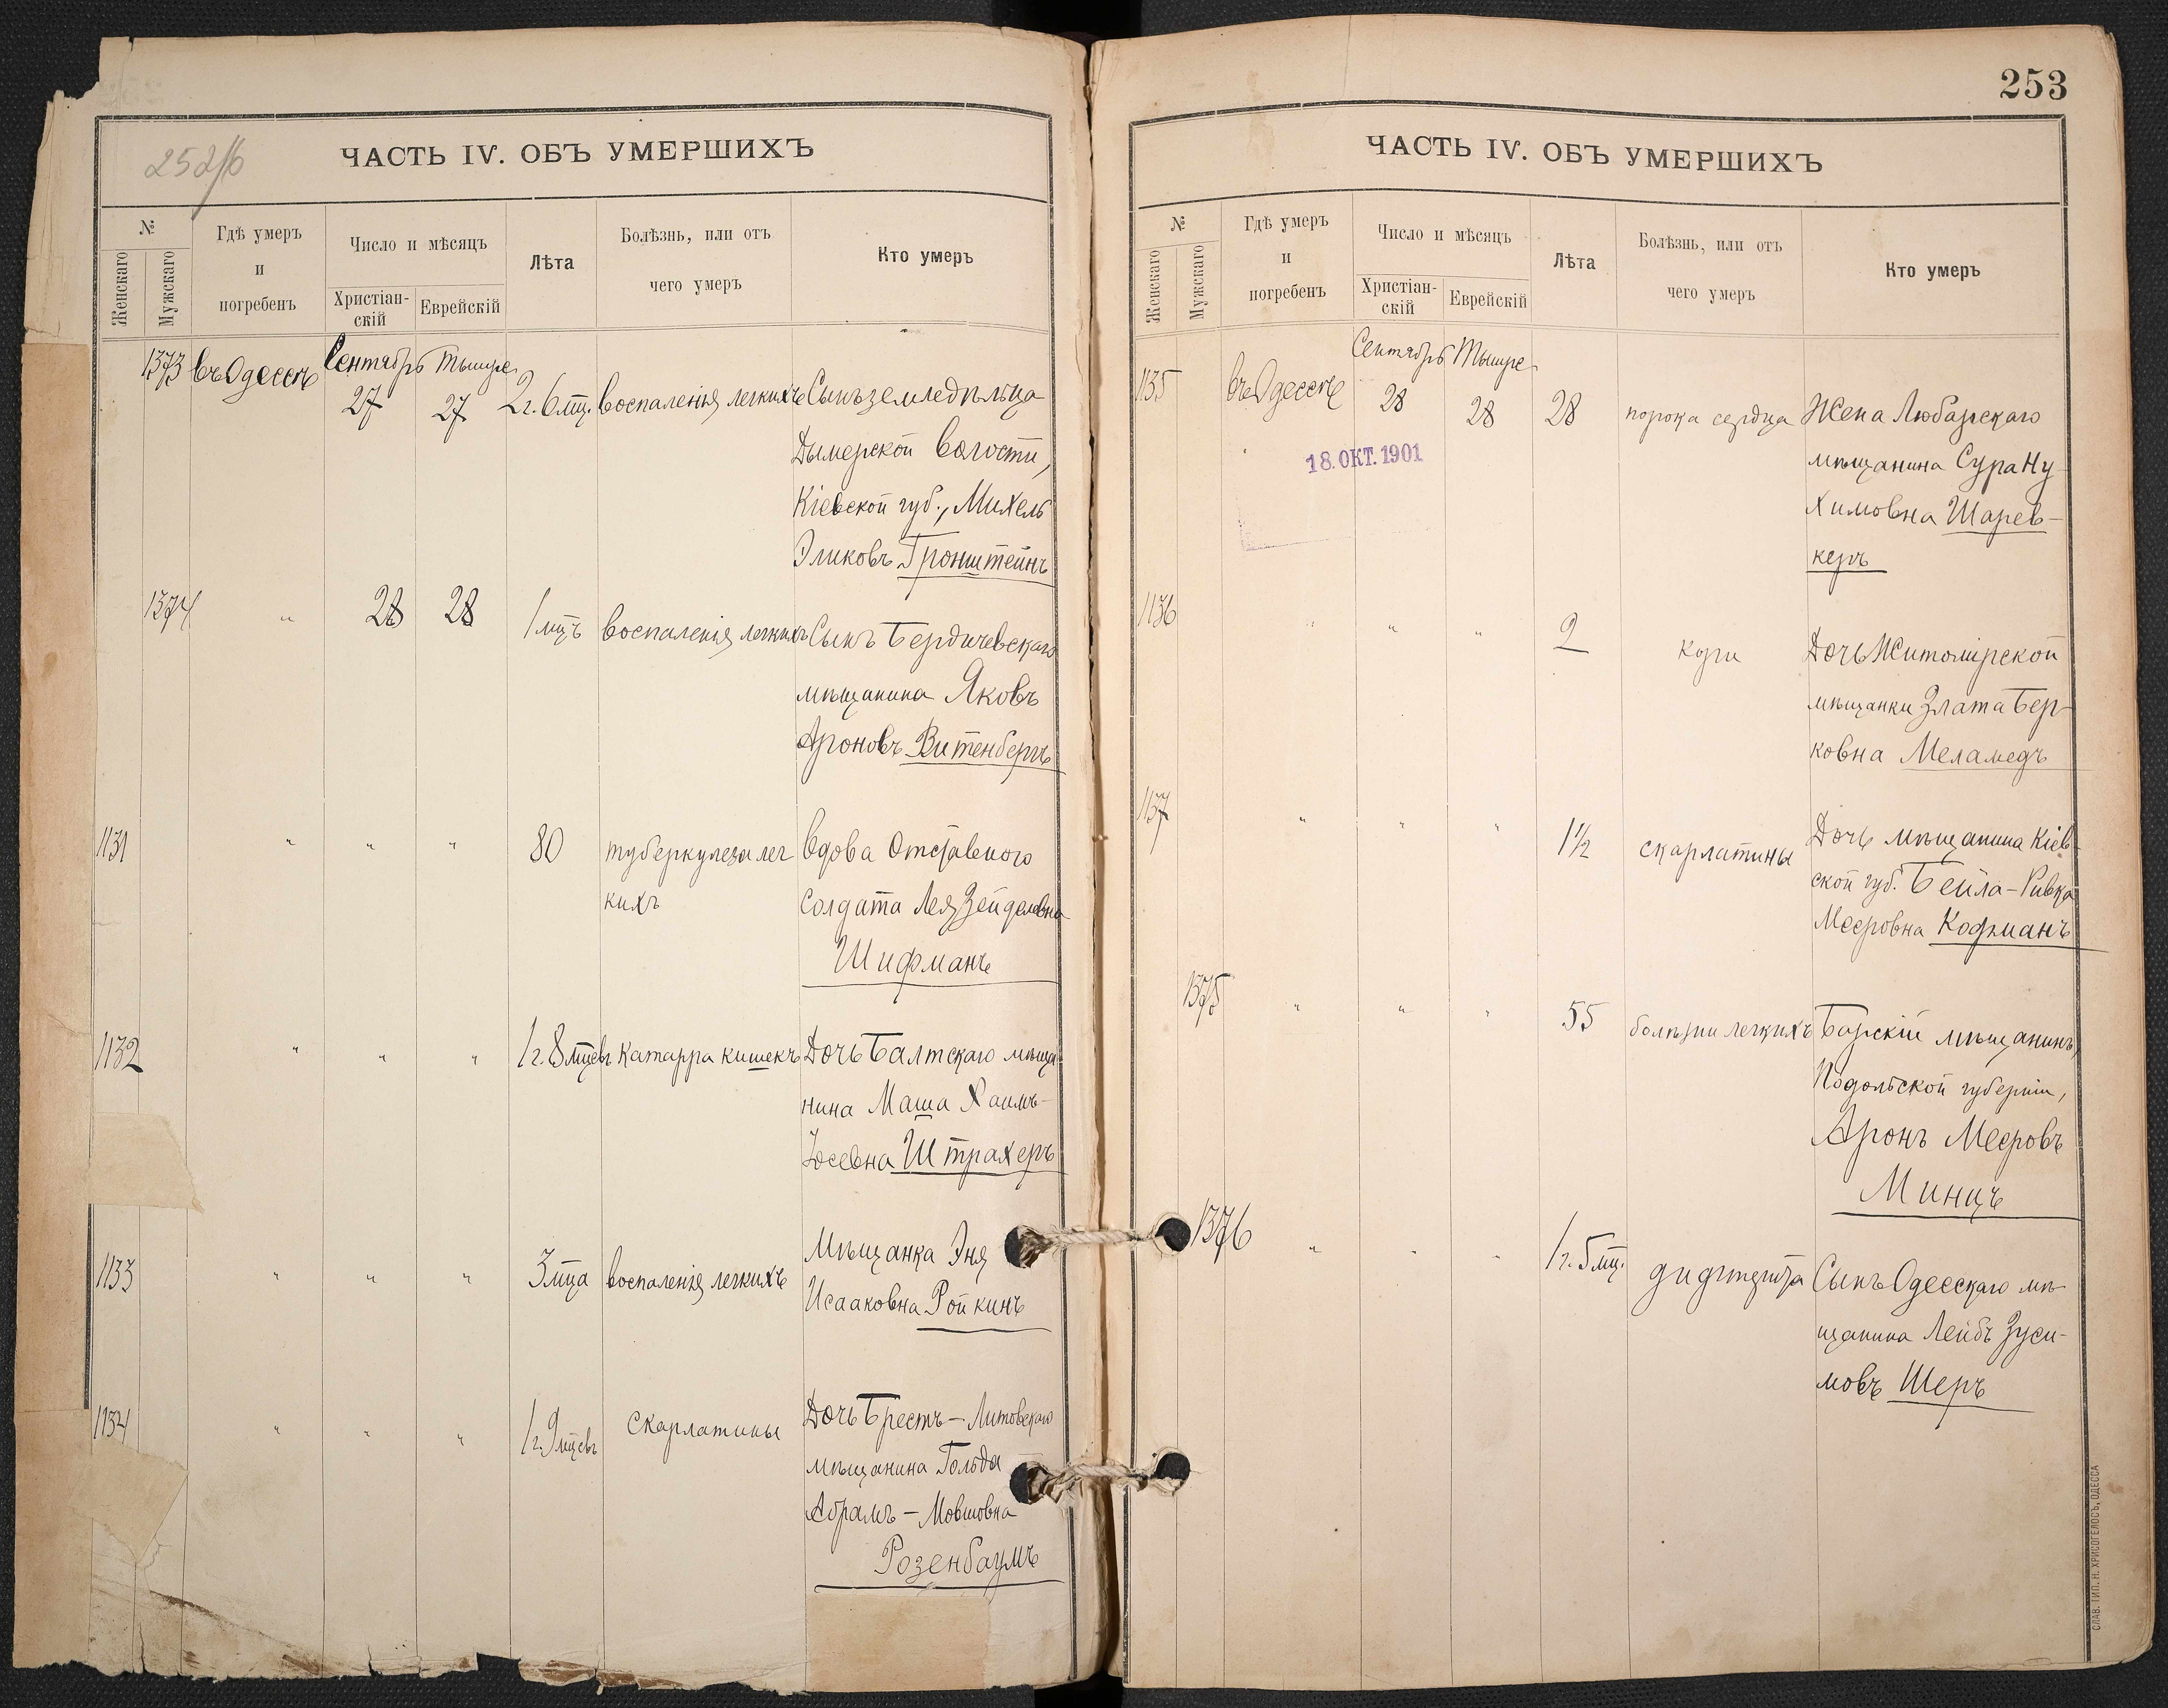 252/б
ЧАСТЬ IV. ОБЪ УМЕРШИХЪ
№
Женскаго
Мужскаго
Гдѣ умеръ
и
погребенъ
Число и мѣсяцъ
Христіан-
скій
Еврейскій
Лѣта
Болѣзнь, или отъ
чего умеръ
Кто умеръ
1373 въ Одессѣ Сентябрь Тышре
27 27 2 г. 6 мц. воспаленія легкихъ Сынъ земледѣльца
Дымерской волости,
Кіевской губ., Михель
Эликовъ Гронштейнъ
1374 " 28 28 1 мцъ воспаленія легкихъ Сынъ Бердичевскаго
мѣщанина Яковъ
Ароновъ Витенбергъ
1131 " " " 80 туберкулеза лег Вдова Отставного
кихъ солдата Лея Зейделовна
Шифманъ
1132 " " " 1 г. 8 мцевъ катарра кишекъ Дочь Балтскаго мѣща-
нина Маша Хаимъ-
Іосевна Штрахеръ
1133 " " " 3 мца воспаленія легкихъ Мѣщанка Эня
Исааковна Ройкинъ
1134 " " " 1 г. 9 мцевъ Скарлатины Дочь Брестъ-Литовскаго
мѣщанина Гольда
Абрамъ-Мовшовна
Розенбаумъ
253
ЧАСТЬ IV. ОБЪ УМЕРШИХЪ
№
Женскаго
Мужскаго
Гдѣ умеръ
и
погребенъ
Число и мѣсяцъ
Христіан-
скій
Еврейскій
Лѣта
Болѣзнь, или отъ
чего умеръ
Кто умеръ
1135 въ Одессѣ Сентябрь Тышре
28 28 28 порока сердца Жена Любарскаго
18. ОКТ. 1901
мѣщанина Сура Ну-
химовна Шарев-
керъ
1136 " " " 2 кори Дочь Житомірской
мѣщанки Злата Бер-
ковна Меламедъ
1137 " " " 1½ скарлатины Дочь мѣщанина Кіев-
ской губ. Бейла-Ривка
Мееровна Кофманъ
1375 " " " 55 болѣзни легкихъ Барскій мѣщанинъ,
Подольской губерніи,
Аронъ Мееровъ
Минцъ
1376 " " " 1 г. 5 мц. дифтерита Сынъ Одесскаго мѣ-
щанина Лейбъ Зуси-
мовъ Шеръ
СЛАВ. ТИП. Н. ХРИСОГЕЛОСЪ, ОДЕССА